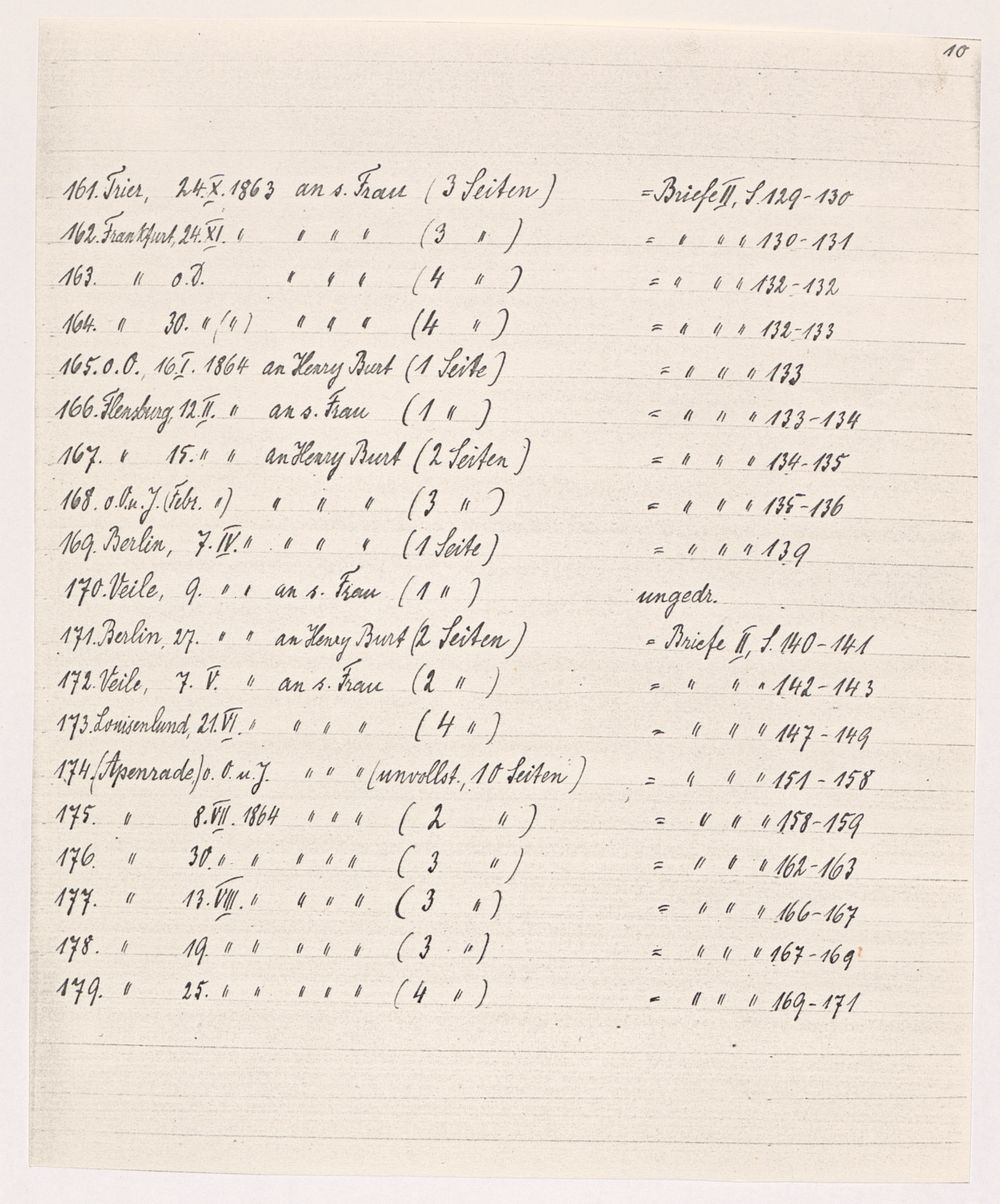 10
161. Trier, 24.X.1863 an s. Frau (3 Seiten) = Briefe II, S. 129-130
162. Frankfurt, 24.XI. " " " " (3 " ) = " " " 130-131
163. " o.D. " " " (4 " ) = " " " 132-132
164. " 30. " (") " " " (4 " ) = " " " 132-133
165. o.O., 16.I. 1864 an Henry Burt (1 Seite) = " " " 133
166. Flensburg, 12.II. " an s. Frau (1 " ) = " " " 133-134
167. " 15. " " an Henry Burt (2 Seiten) = " " " 134-135
168. o.O.u.J. (Febr. ") " " " (3 " ) = " " " 135-136
169. Berlin, 7.IV. " " " " (1 Seite) = " " " 139
170. Veile, 9. " " an s. Frau (1 " ) ungedr.
171. Berlin, 27. " " an Henry Burt (2 Seiten) = Briefe II, S. 140-141
172. Veile, 7. V. " an s. Frau (2 " ) = " " " 142-143
173. Louisenlund, 21.VI. " " " " (4 " ) = " " " 147-149
174. (Apenrade) o.O.u.J. " " " (unvollst., 10 Seiten) = " " " 151-158
175. " 8.VII. 1864 " " " (2 " ) = " " " 158-159
176. " 30. " " " " " (3 " ) = " " " 162-163
177. " 13.VIII. " " " " (3 " ) = " " " 166-167
178. " 19. " " " " " (3 " ) = " " " 167-169
179. " 25. " " " " " (4 " ) = " " " 169-171